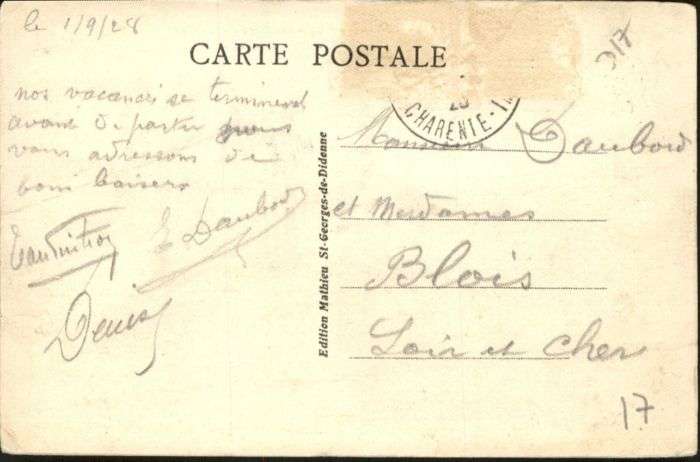 le 1/9/28
CARTE POSTALE
317
nos vacances se terminent
avant de partir nous
vous adressons de
bons baisers
E Daubord
Denis
Edition Mathieu St-Georges-de-Didonne
28
CHARENTE-IN
Monsieur Daubord
et Mesdames
Blois
Loir et Cher
17